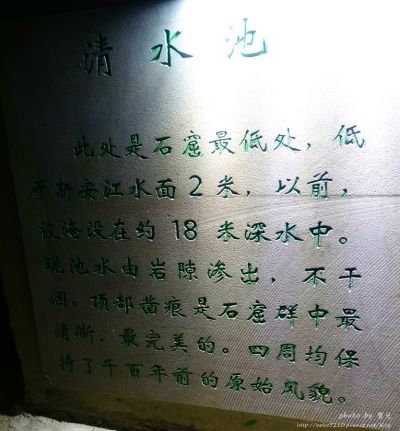 清水池
此处是石窟最低处，低
于新安江水面2米，以前，
被淹没在约18米深水中。
现池水由岩隙渗出，不干
涸。顶部凿痕是石窟群中最
清晰、最完美的。四周均保
持了千百年前的原始风貌。
photo by